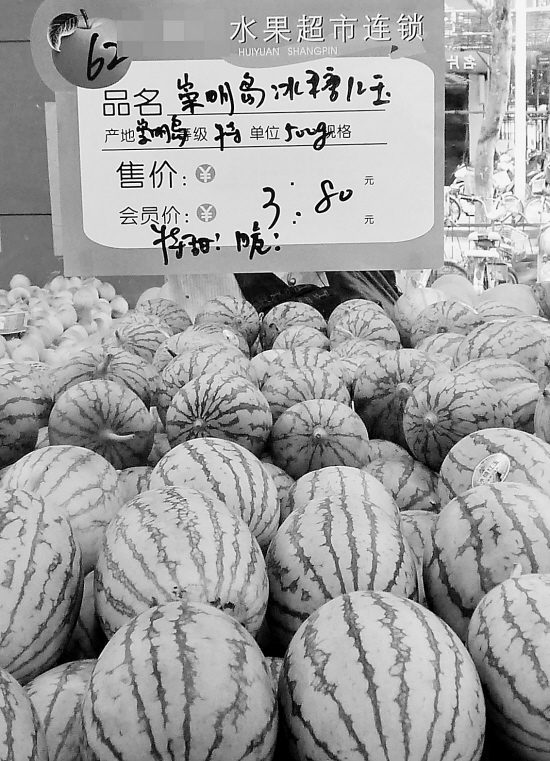 62
水果超市连锁
HUIYUAN SHANGPIN
品名 崇明岛冰糖
产地 崇明岛 等级 特 单位 500g 规格
售价: ¥ 元
会员价: ¥ 3.80 元
特甜! 脆!
名片